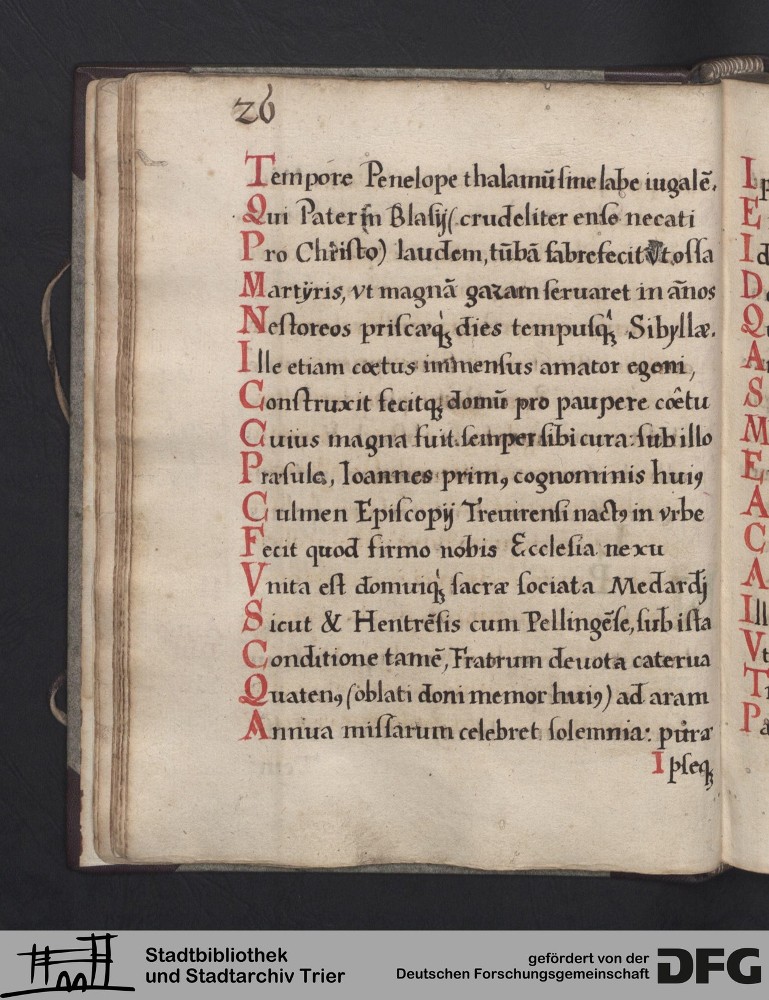 26
Tempore Penelope thalamū ſine labe iugalē.
Qui Pater in Blaſij (crudeliter enſe necati
Pro Chriſto) laudem, tūbā fabrefecit Vt oſſa
Martÿris, vt magnā gazam ſeruaret in āños
Neſtoreos priſcæq́ꝫ dies tempuſq́ꝫ Sibyllæ.
Ille etiam cœtus immenſus amator egeni,
Conſtruxit fecitqꝫ domū pro paupere cœ̂tu
Cuius magna fuit ſemper ſibi cura: ſub illo
Præſule, Ioannes primꝰ cognominis huiꝰ
Culmen Epiſcopij Treuirenſi nactꝰ in vrbe
Fecit quod firmo nobis Eccleſia nexu
Vnita eſt domuiq́ꝫ ſacræ ſociata Medardj
Sicut & Hentrēſis cum Pellingēſe, ſub iſta
Conditione tamē, Fratrum deuota caterua
Quatenꝰ (oblati doni memor huiꝰ) ad aram
Annua miſſarum celebret ſolemnia: puræ
Ipſeqꝫ
I
E
I
D
Q
A
S
M
E
A
C
A
Ill
Vt
T
P
Stadtbibliothek
und Stadtarchiv Trier
gefördert von der
Deutschen Forschungsgemeinschaft
DFG